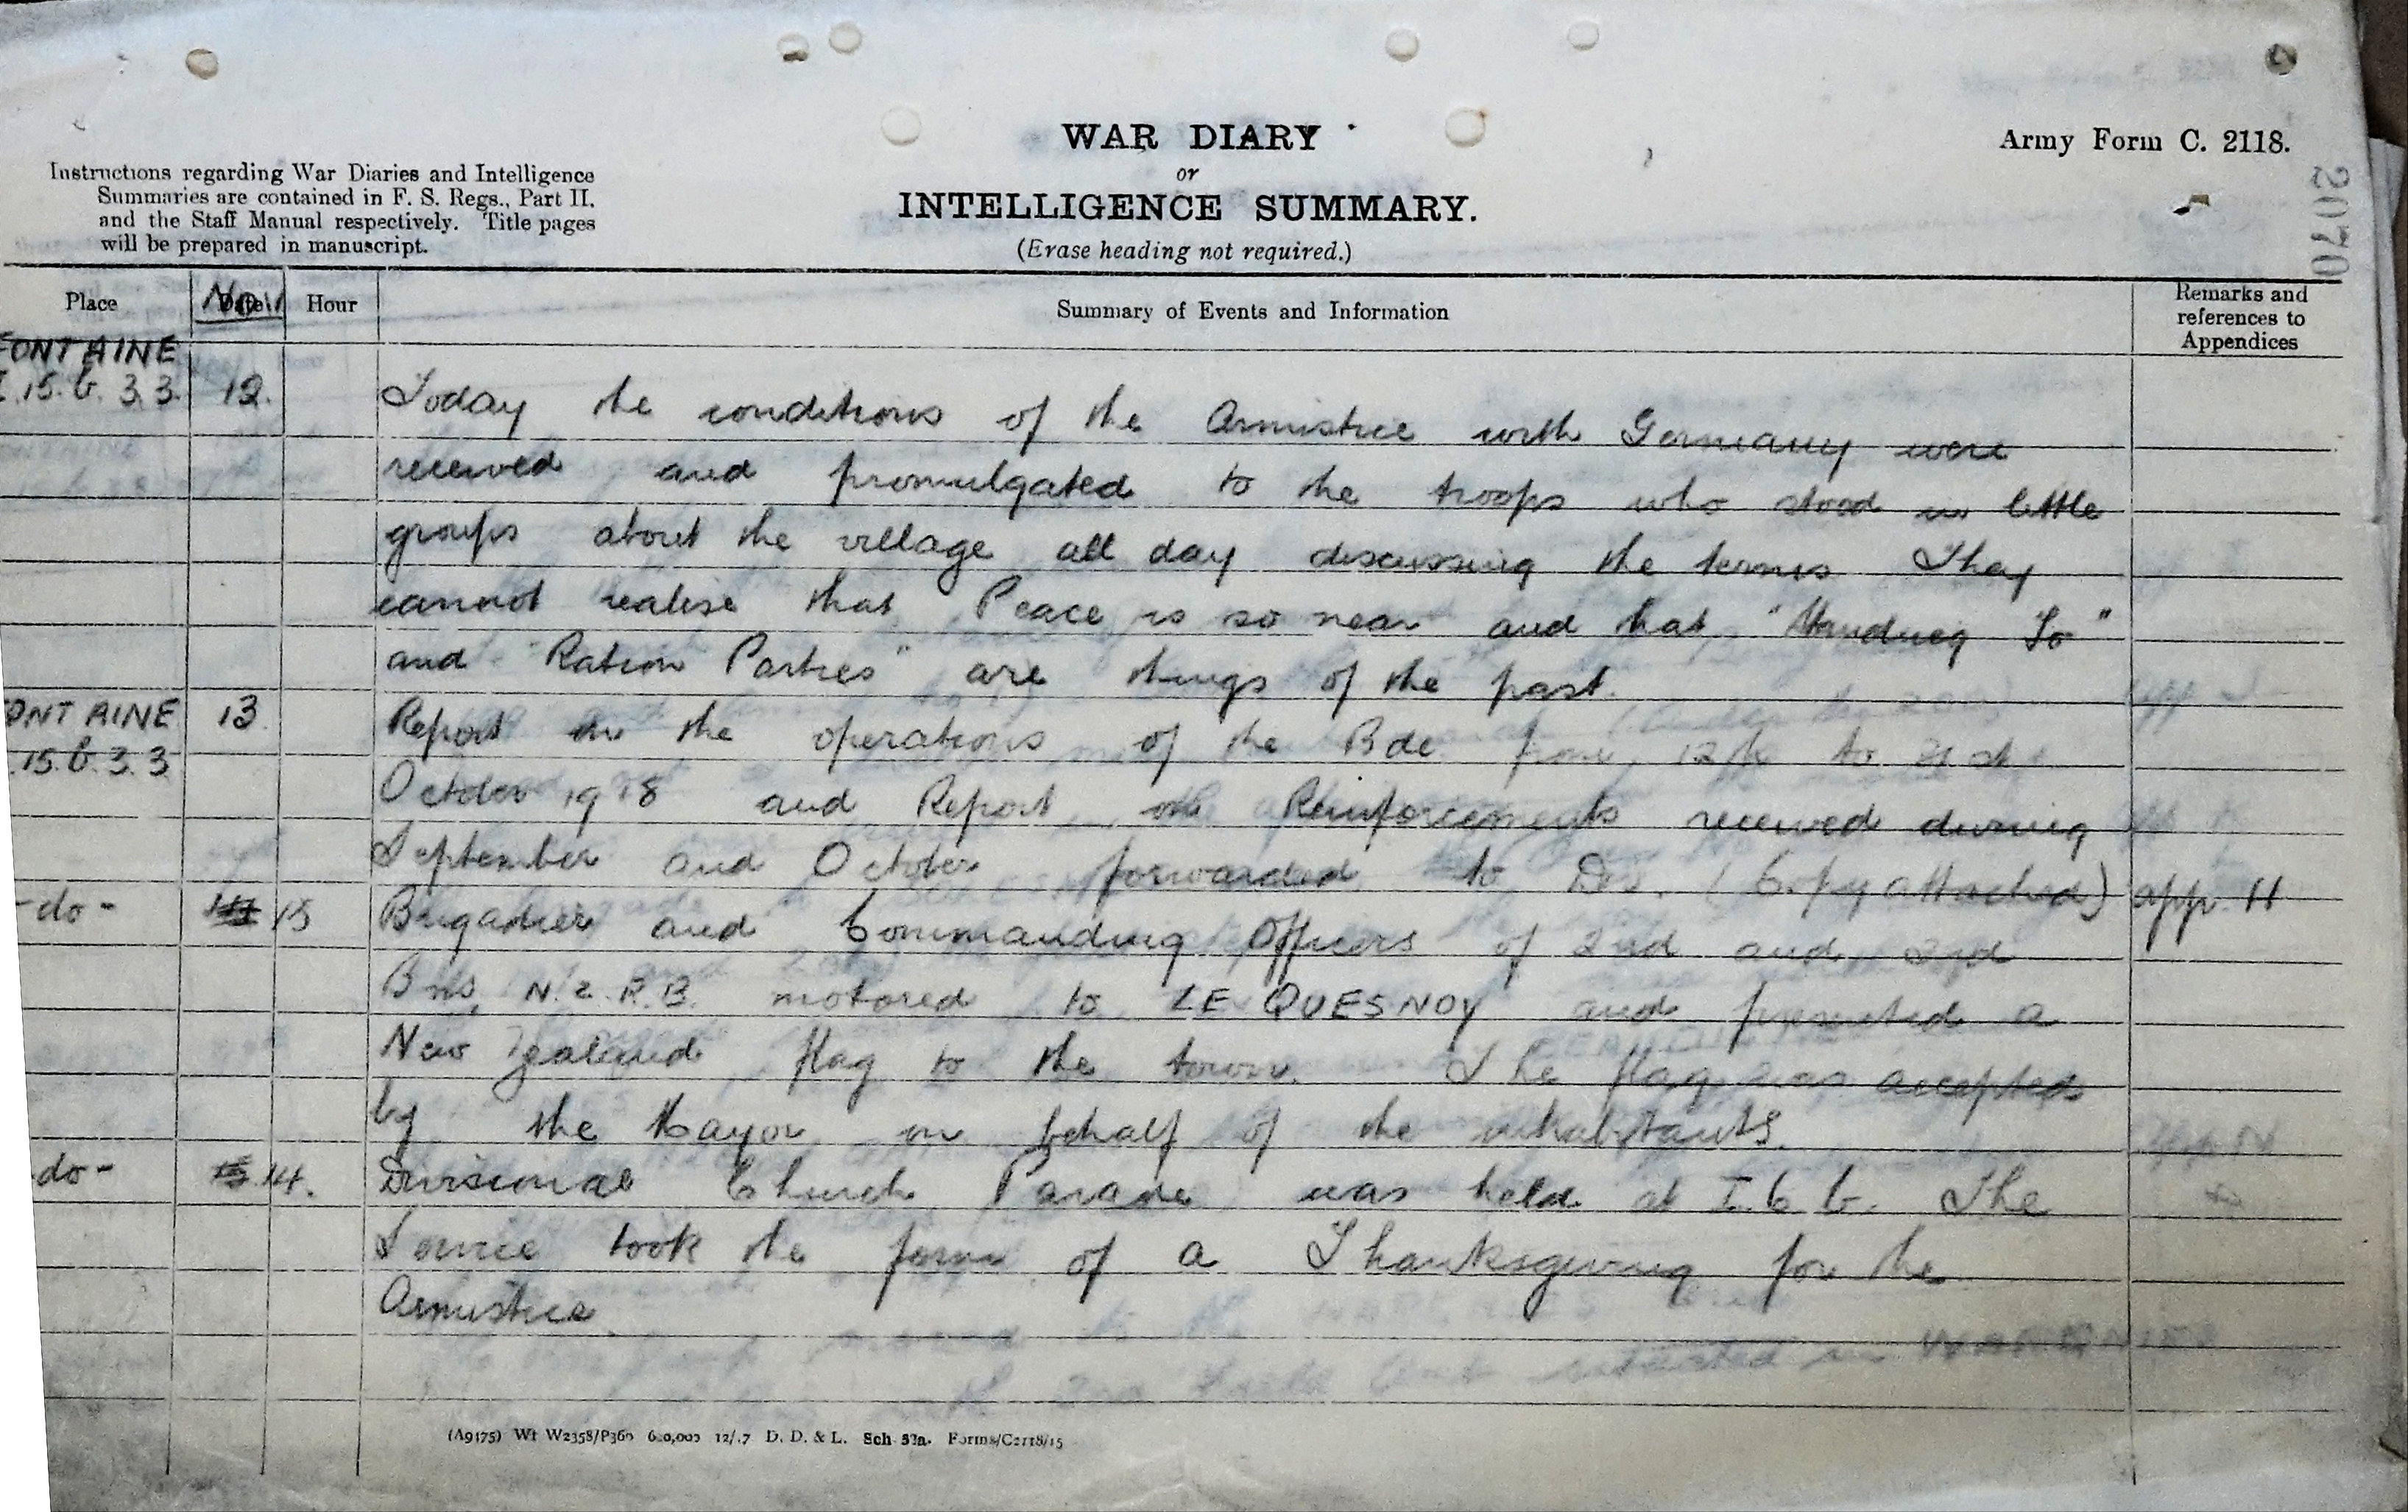 WAR DIARY
or
INTELLIGENCE SUMMARY.
(Erase heading not required.)
Army Form C. 2118.
2070
Instructions regarding War Diaries and Intelligence
Summaries are contained in F. S. Regs., Part II.
and the Staff Manual respectively. Title pages
will be prepared in manuscript.
Place Date Nov Hour Summary of Events and Information Remarks and
references to
Appendices
FONTAINE
I.15.b.3.3. 12. Today the conditions of the Armistice with Germany were
received and promulgated to the troops who stood in little
groups about the village all day discussing the terms They
cannot realise that Peace is so near and that "Standing To"
and "Ration Parties" are things of the past.
ONTAINE 13. Report on the operations of the Bde from 12th to 21st
.15.b.3.3 October 1918 and Report on Reinforcements received during
September and October forwarded to Div. (Copy attached) app. H
-do- 15 Brigadier and Commanding Officers of 2nd and 3rd
Bns. N.Z.R.B. motored to LE QUESNOY and presented a
New Zealand flag to the town. The flag was accepted
by the Mayor on behalf of the inhabitants.
-do- 14. Divisional Church Parade was held at I.6.b. The
Service took the form of a Thanksgiving for the
Armistice.
(A9175) Wt W2358/P360 600,000 12/17 D. D. & L. Sch 52a. Forms/C2118/15